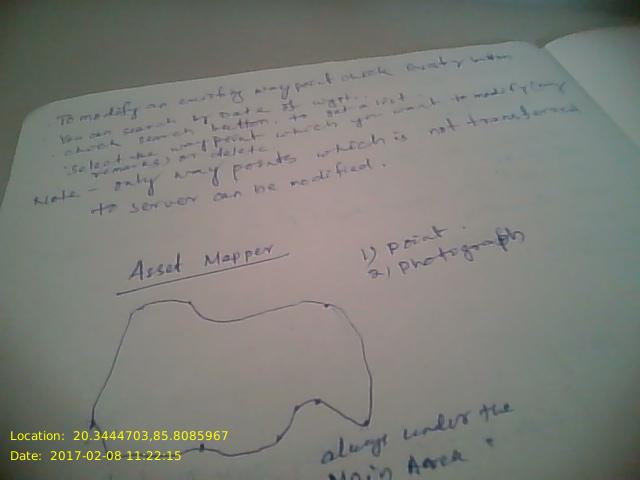 To modify an existing way point check Existing button
You can search by Date of wypt.
check search button. to get a list
Select the way point which you want to modify (any
remarks) or delete
Note - only way points which is not transferred
to server can be modified.
Asset Mapper
1) point.
2) photograph
always under the
Main Area
Location: 20.3444703,85.8085967
Date: 2017-02-08 11:22:15